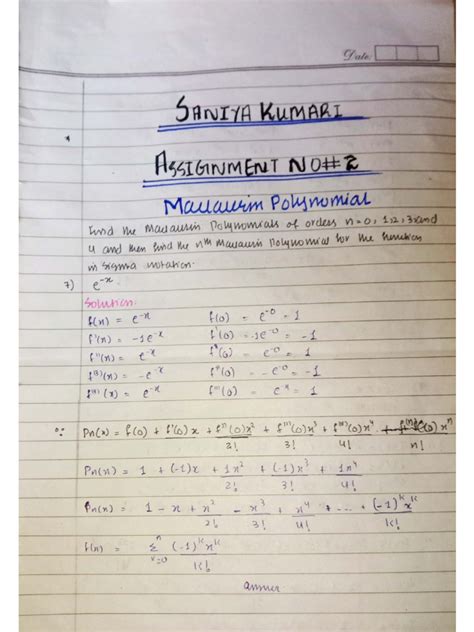 Date:
SANIYA KUMARI
ASSIGNMENT NO# 2
Maclaurin Polynomial
Find the Maclaurin Polynomials of orders n=0, 1, 2, 3 and
4 and then find the nth Maclaurin Polynomial for the function
in sigma notation.
7) e^-x
Solution:
f(x) = e^-x f(0) = e^-0 = 1
f'(x) = -1e^-x f'(0) = -1e^-0 = -1
f''(x) = e^-x f''(0) = e^-0 = 1
f(3)(x) = -e^-x = -e^-0 = -1
f(4)(x) = e^-x = e^-x = 1
Pn(x) = f(0) + f'(0)x + f''(0)x^2/2! + f'''(0)x^3/3! + f(4)(0)x^4/4! + f(n)(0)x^n/n!
Pn(x) = 1 + (-1)x + 1x^2/2! + (-1)x^3/3! + 1x^4/4!
Pn(x) = 1 - x + x^2/2! - x^3/3! + x^4/4! + ... + (-1)^k x^k/k!
f(x) = n Σ v=0 (-1)^k x^k/k!
answer